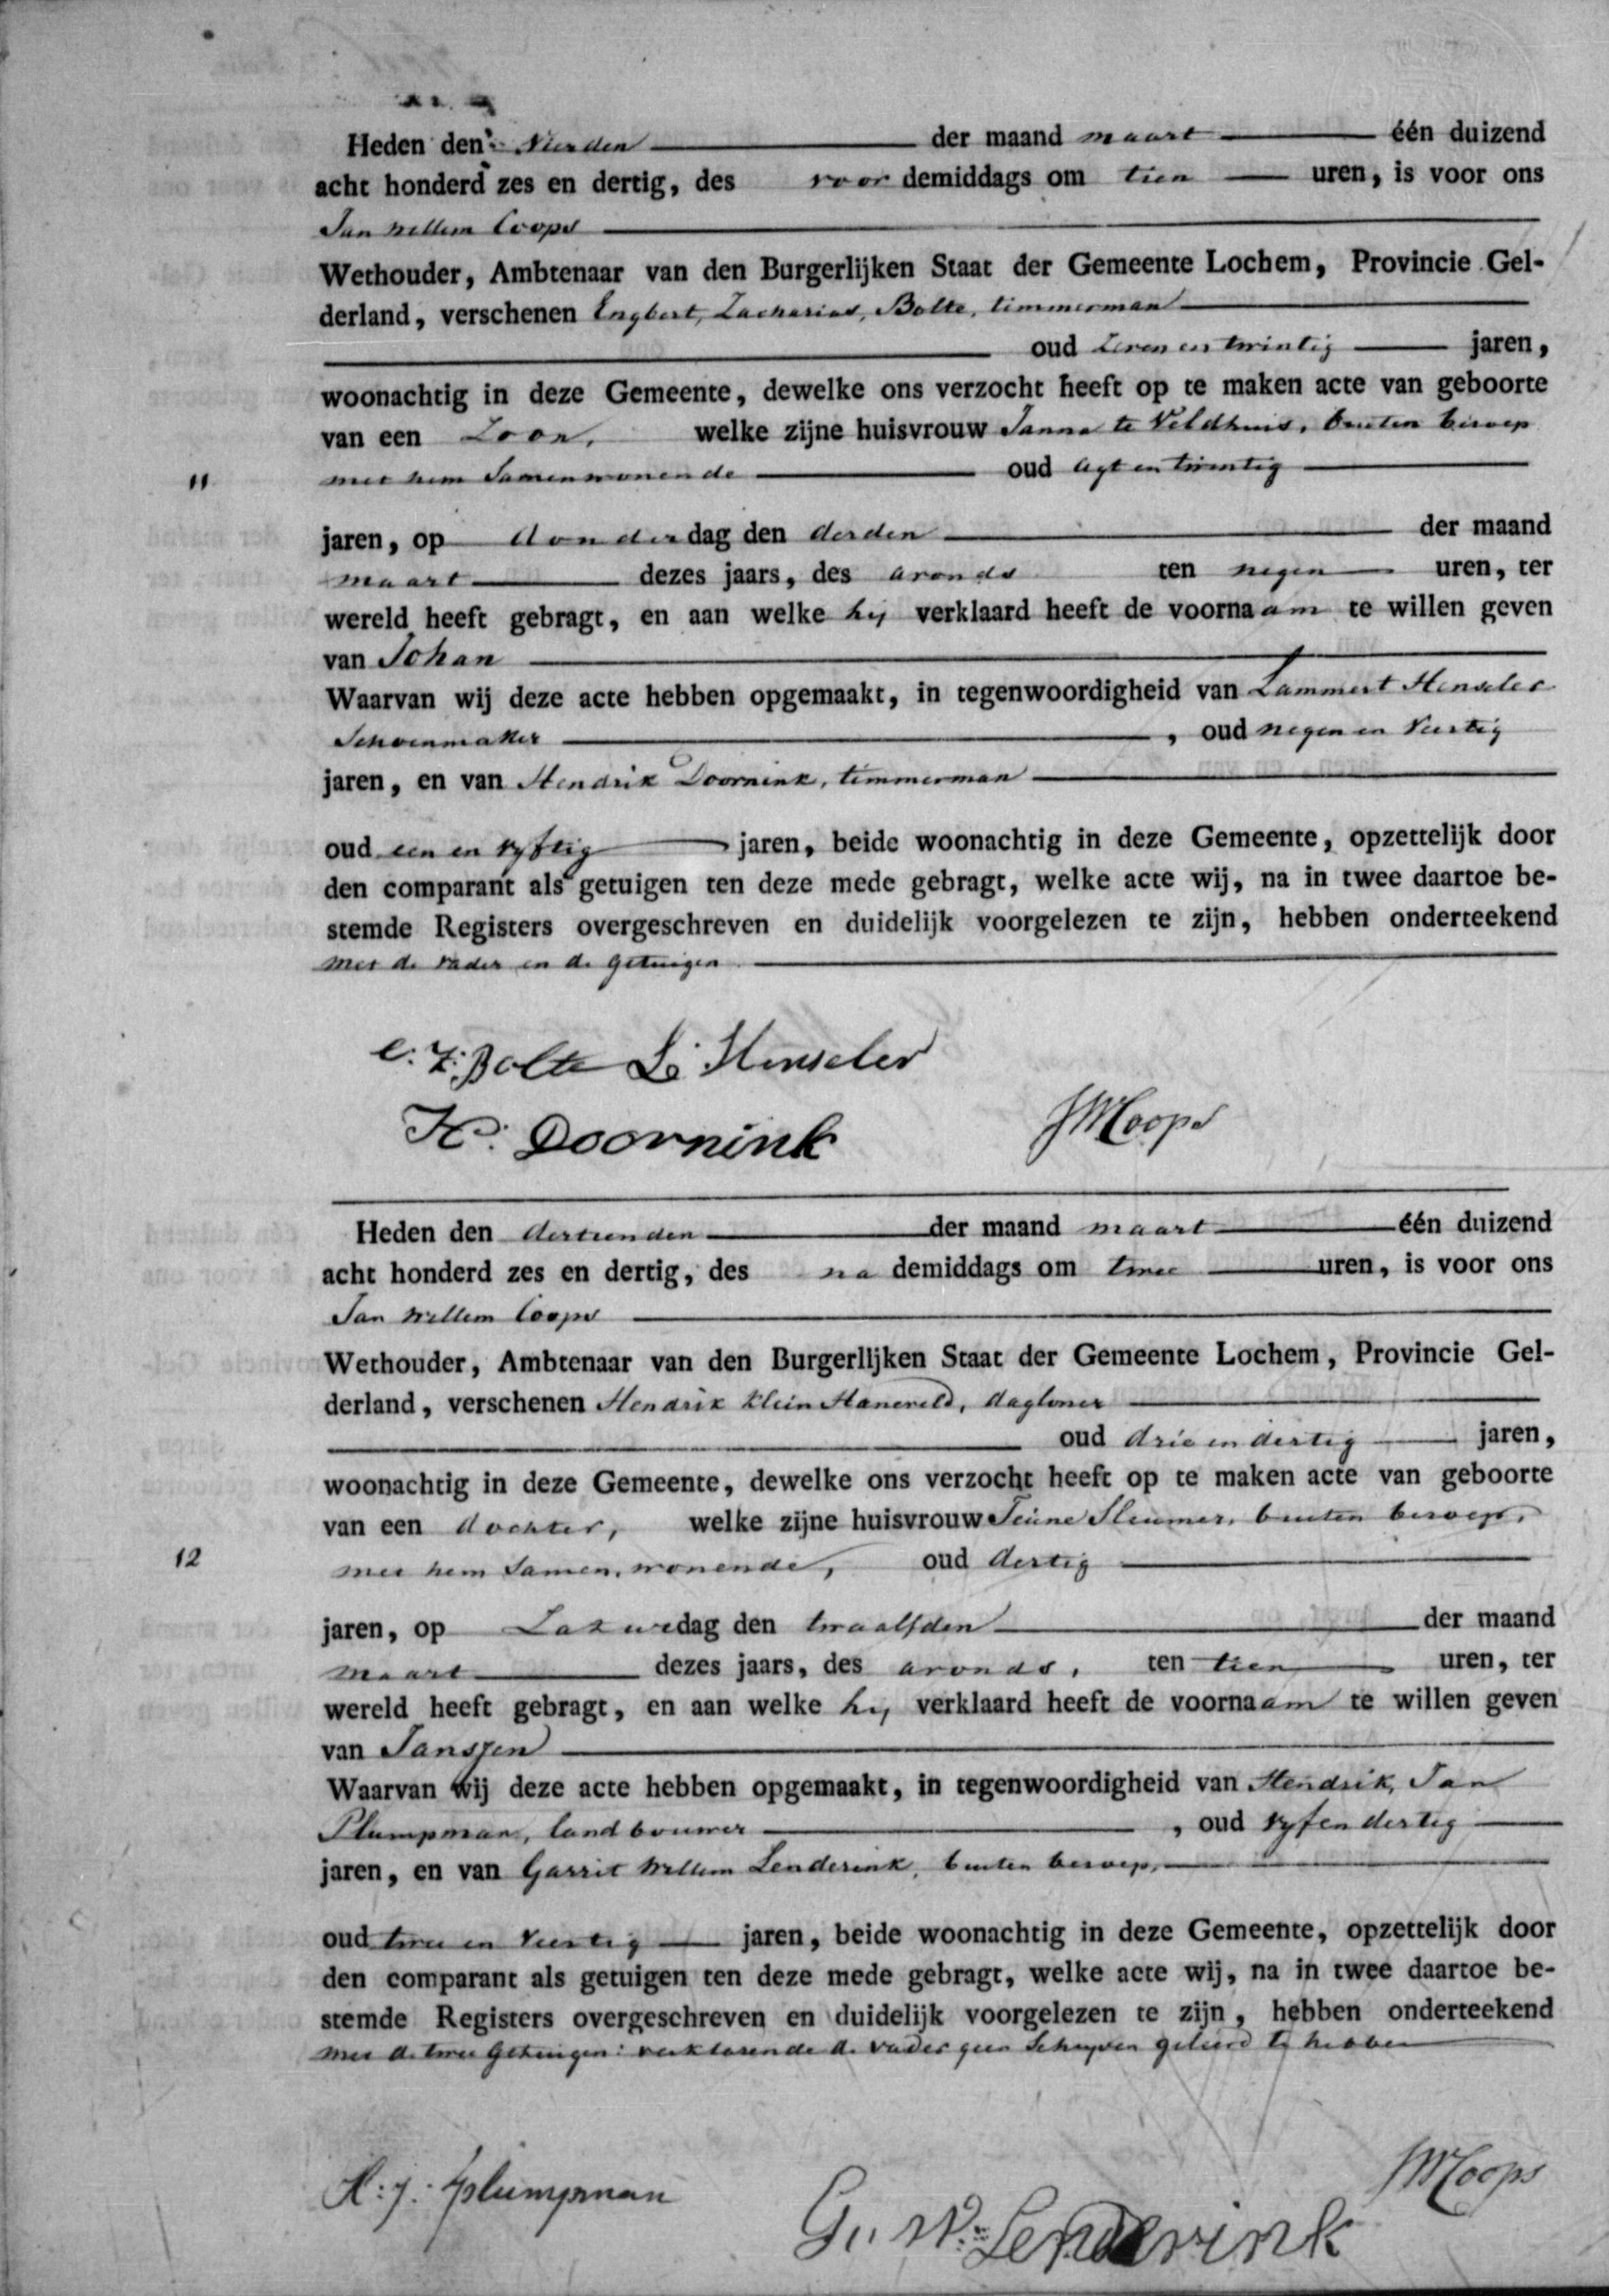 Heden den Vierden der maand maart één duizend
acht honderd zes en dertig, des voor demiddags om tien uren, is voor ons
Jan Willem Coops
Wethouder, Ambtenaar van den Burgerlijken Staat der Gemeente Lochem, Provincie Gel-
derland, verschenen Engbert, Zacharias, Bolte, timmerman
oud zeven en twintig jaren,
woonachtig in deze Gemeente, dewelke ons verzocht heeft op te maken acte van geboorte
van een Zoon, welke zijne huisvrouw Janna te Veldhuis, buiten beroep
met hem Samenwonende oud agt en twintig
11
jaren, op donderdag den derden der maand
maart dezes jaars, des avonds ten negen uren, ter
wereld heeft gebragt, en aan welke hy verklaard heeft de voornaam te willen geven
van Johan
Waarvan wij deze acte hebben opgemaakt, in tegenwoordigheid van Lammert Henseler
Schoenmaker, oud negen en Veertig
jaren, en van Hendrik Doornink, timmerman
oud een en vyftig jaren, beide woonachtig in deze Gemeente, opzettelijk door
den comparant als getuigen ten deze mede gebragt, welke acte wij, na in twee daartoe be-
stemde Registers overgeschreven en duidelijk voorgelezen te zijn, hebben onderteekend
met de vader en de getuigen
E. Z. Bolte L. Henseler
H. Doornink JWCoops
Heden den dertienden der maand maart één duizend
acht honderd zes en dertig, des na demiddags om twee uren, is voor ons
Jan Willem Coops
Wethouder, Ambtenaar van den Burgerlijken Staat der Gemeente Lochem, Provincie Gel-
derland, verschenen Hendrik Klein Haneveld, dagloner
oud drie en dertig jaren,
woonachtig in deze Gemeente, dewelke ons verzocht heeft op te maken acte van geboorte
van een dochter, welke zijne huisvrouw Teune Sleumer, buiten beroep,
met hem Samen, wonende, oud dertig
12
jaren, op Zaturdag den twaalfden der maand
maart dezes jaars, des avonds, ten tien uren, ter
wereld heeft gebragt, en aan welke hy verklaard heeft de voornaam te willen geven
van Janssen
Waarvan wij deze acte hebben opgemaakt, in tegenwoordigheid van Hendrik, Jan
Plumpman, landbouwer, oud vyfendertig
jaren, en van Garrit Willem Lenderink, buiten beroep,
oud twee en Veertig jaren, beide woonachtig in deze Gemeente, opzettelijk door
den comparant als getuigen ten deze mede gebragt, welke acte wij, na in twee daartoe be-
stemde Registers overgeschreven en duidelijk voorgelezen te zijn, hebben onderteekend
met de twee Getuigen: verklarende de vader geen Schryven geleerd te hebben
H: J: Plumpman JWCoops
G. W. Lenderink